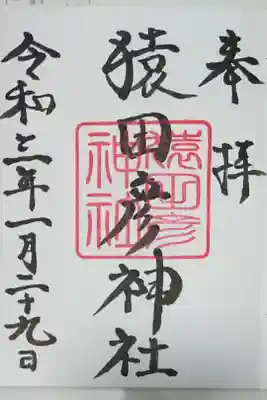 奉拝
猿田彦神社
令和三年一月二十九日
猿田彦神社